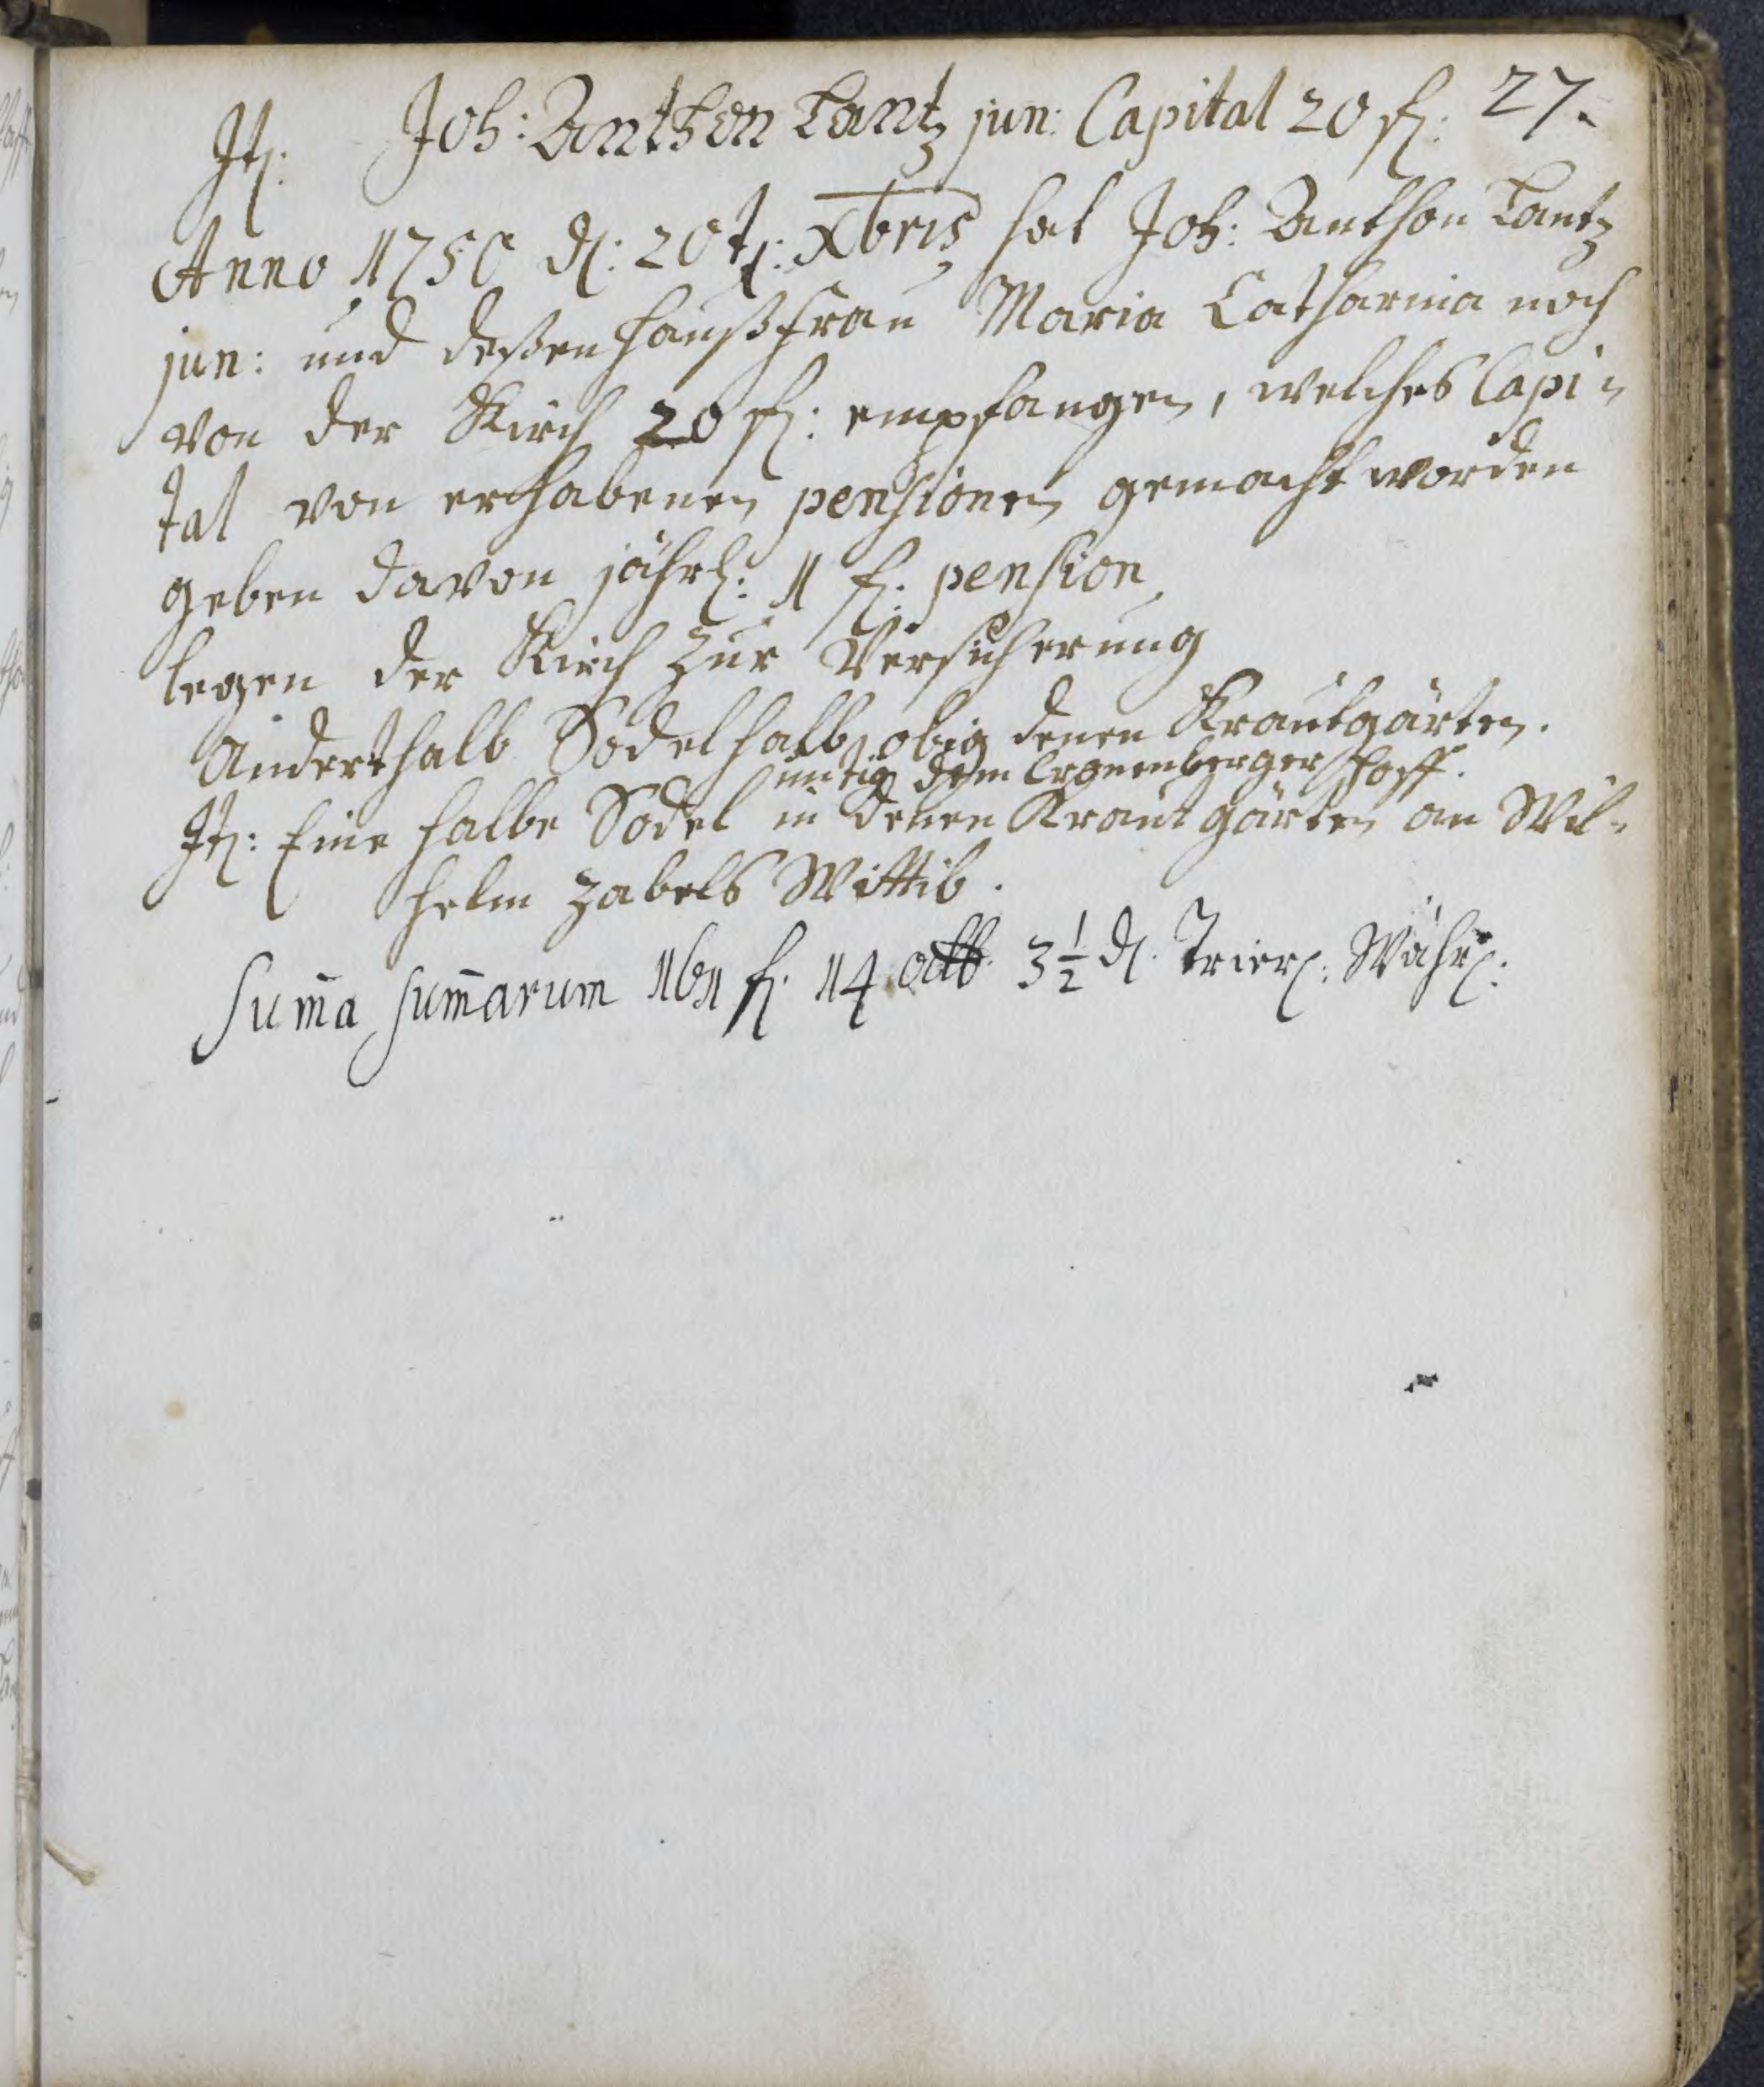 27.
Itē: Joh: Anthon Lantz jun: Capital 20 fl:
Anno 1750 d: 20t: Xbris hat Joh: Anthon Lantz
jun: und deßen haußfrau Maria Catharina noch
von der Kirch 20 fl: empfangen, welches Capi-
tal von erhabenen pensionen gemacht worden
geben davon jährl: 1 fl: pension
legen der Kirch zur Versicherung
Anderthalb Sodel halb obig denen Krautgärten.
untig dem Cronenberger Hoff.
Itē: Eine halbe Sodel in denen Krautgärten an Wil-
helm Zabels Wittib.
Sum̄a sum̄arum 161 fl. 14 alb. 3½ d. Trier: Währ: